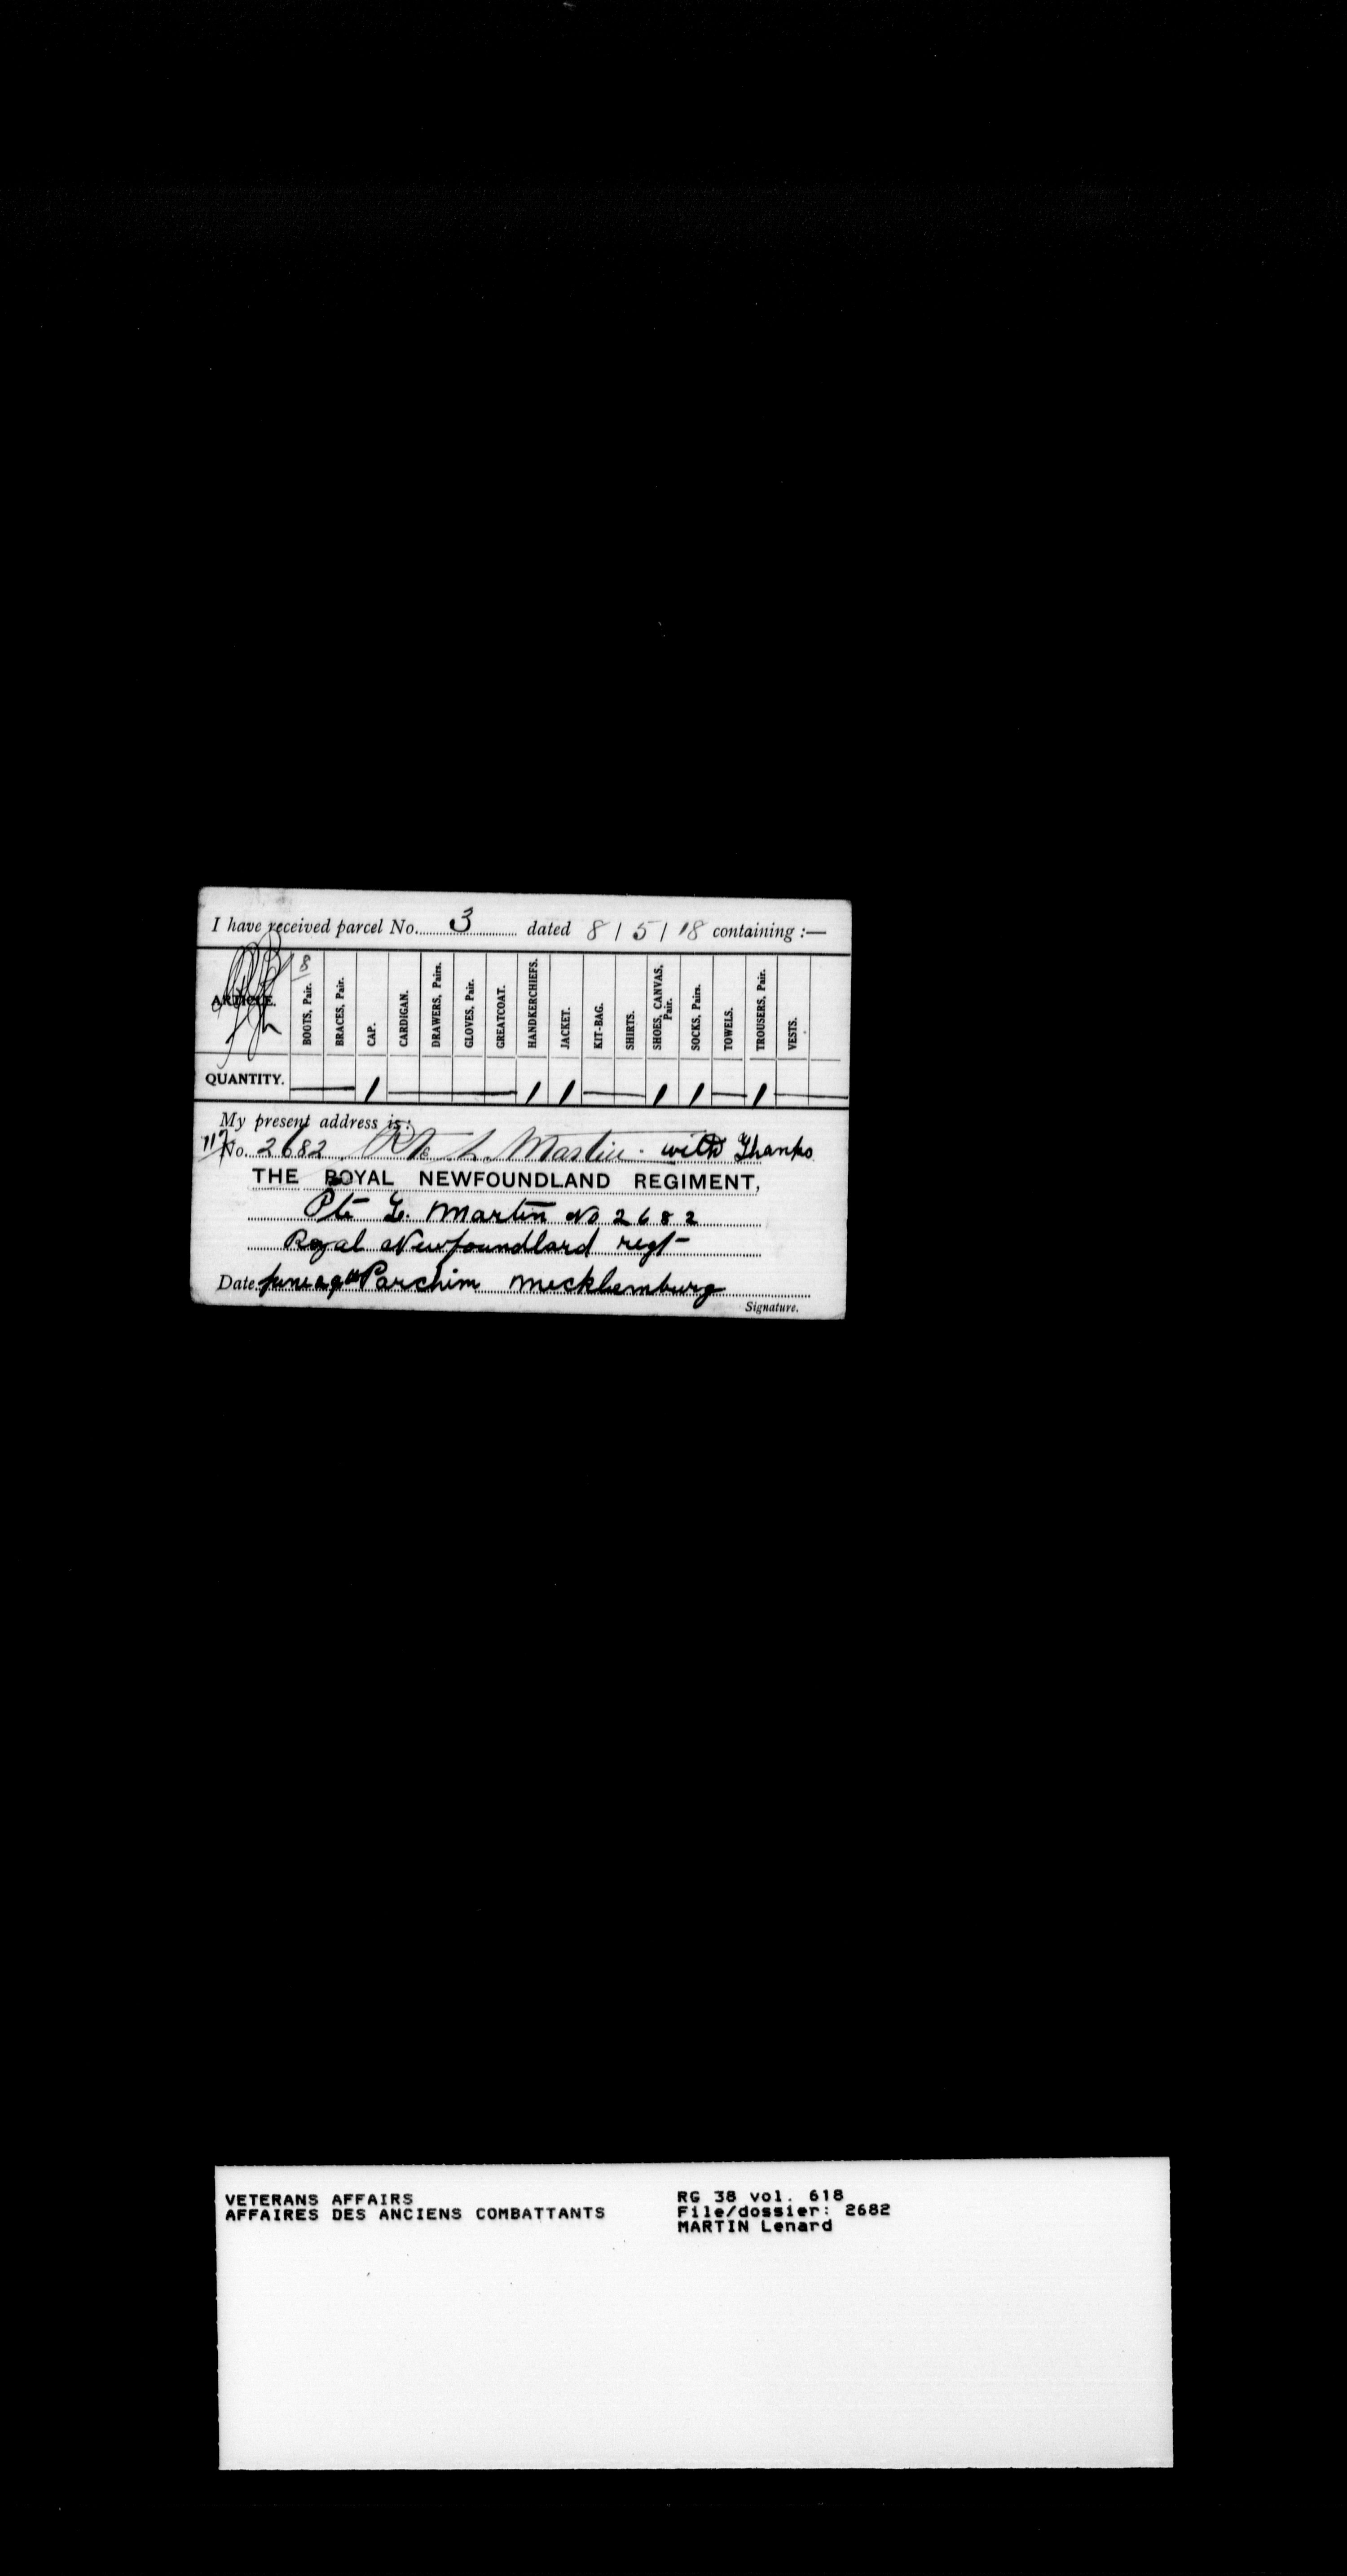 I have received parcel No. 3 dated 8/5/18 containing :—
ARTICLE. 8 BOOTS, Pair. BRACES, Pair. CAP. CARDIGAN. DRAWERS, Pairs. GLOVES, Pair. GREATCOAT. HANDKERCHIEFS. JACKET. KIT-BAG. SHIRTS. SHOES, CANVAS, Pair. SOCKS, Pairs. TOWELS. TROUSERS, Pair. VESTS.
QUANTITY. — — 1 — — — — 1 1 — — 1 1 — 1 — —
My present address is:
No. 2682 Pte L. Martin. with Thanks
THE ROYAL NEWFOUNDLAND REGIMENT,
Pte L. Martin No 2682
Royal Newfoundland regt
Date June Parchim Mecklemburg
Signature.
VETERANS AFFAIRS
AFFAIRES DES ANCIENS COMBATTANTS
RG 38 vol. 618
File/dossier: 2682
MARTIN Lenard